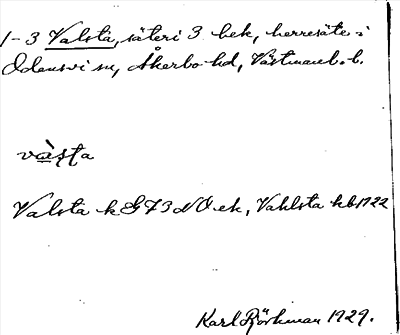 1-3 Valsta, säteri 3 bek, herresäte i
Odensvi sn, Åkerbo hd, Västmanl. l.
våsta
Valsta k G 73 NO ek, Vahlsta kb 1722
Karl Björkman 1929.